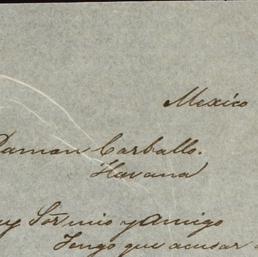 Mexico
Ramon Carballo.
Havana
Muy Sr mio y Amigo
Tengo que acusar